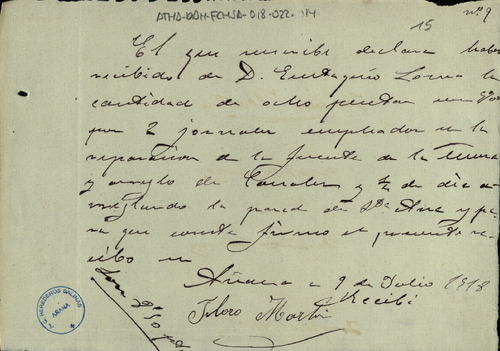 ATHA-DAH-FCHSA-018-022-114
15
nº 9
El que suscribe declara haber
recibido de D. Eustaquio la
cantidad de ocho pesetas
por 2 jornales empleados en la
reparacion de la fuente de la
y arreglo de Canales y ½ de dia
arreglando la pared de Sta Ana y pa
ra que conste firmo el presente re
cibo en
Añana a 9 de Julio 1918
Recibi
Martin
Son
HEREDEROS SALINAS
AÑANA